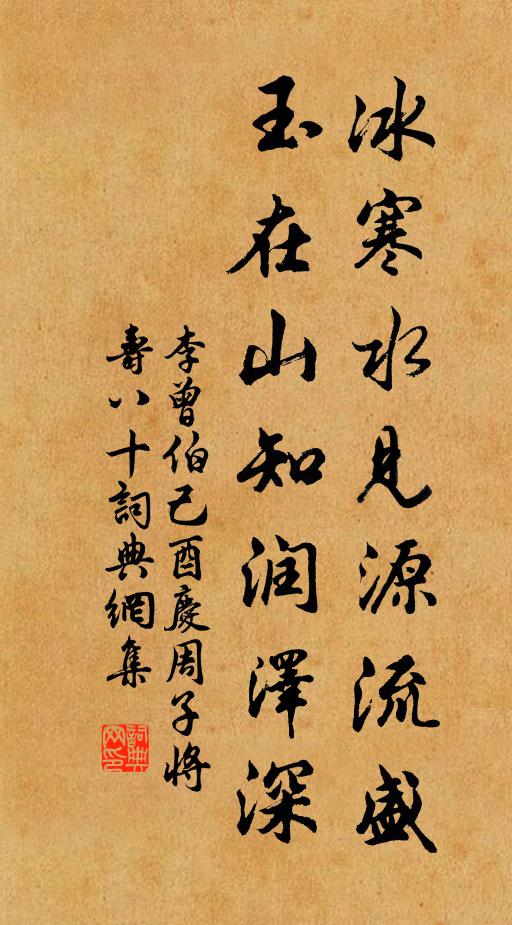 冰寒水见源流盛
玉在山知润泽深
李曾伯己酉慶周子將
壽八十詞典網集
詞典網印